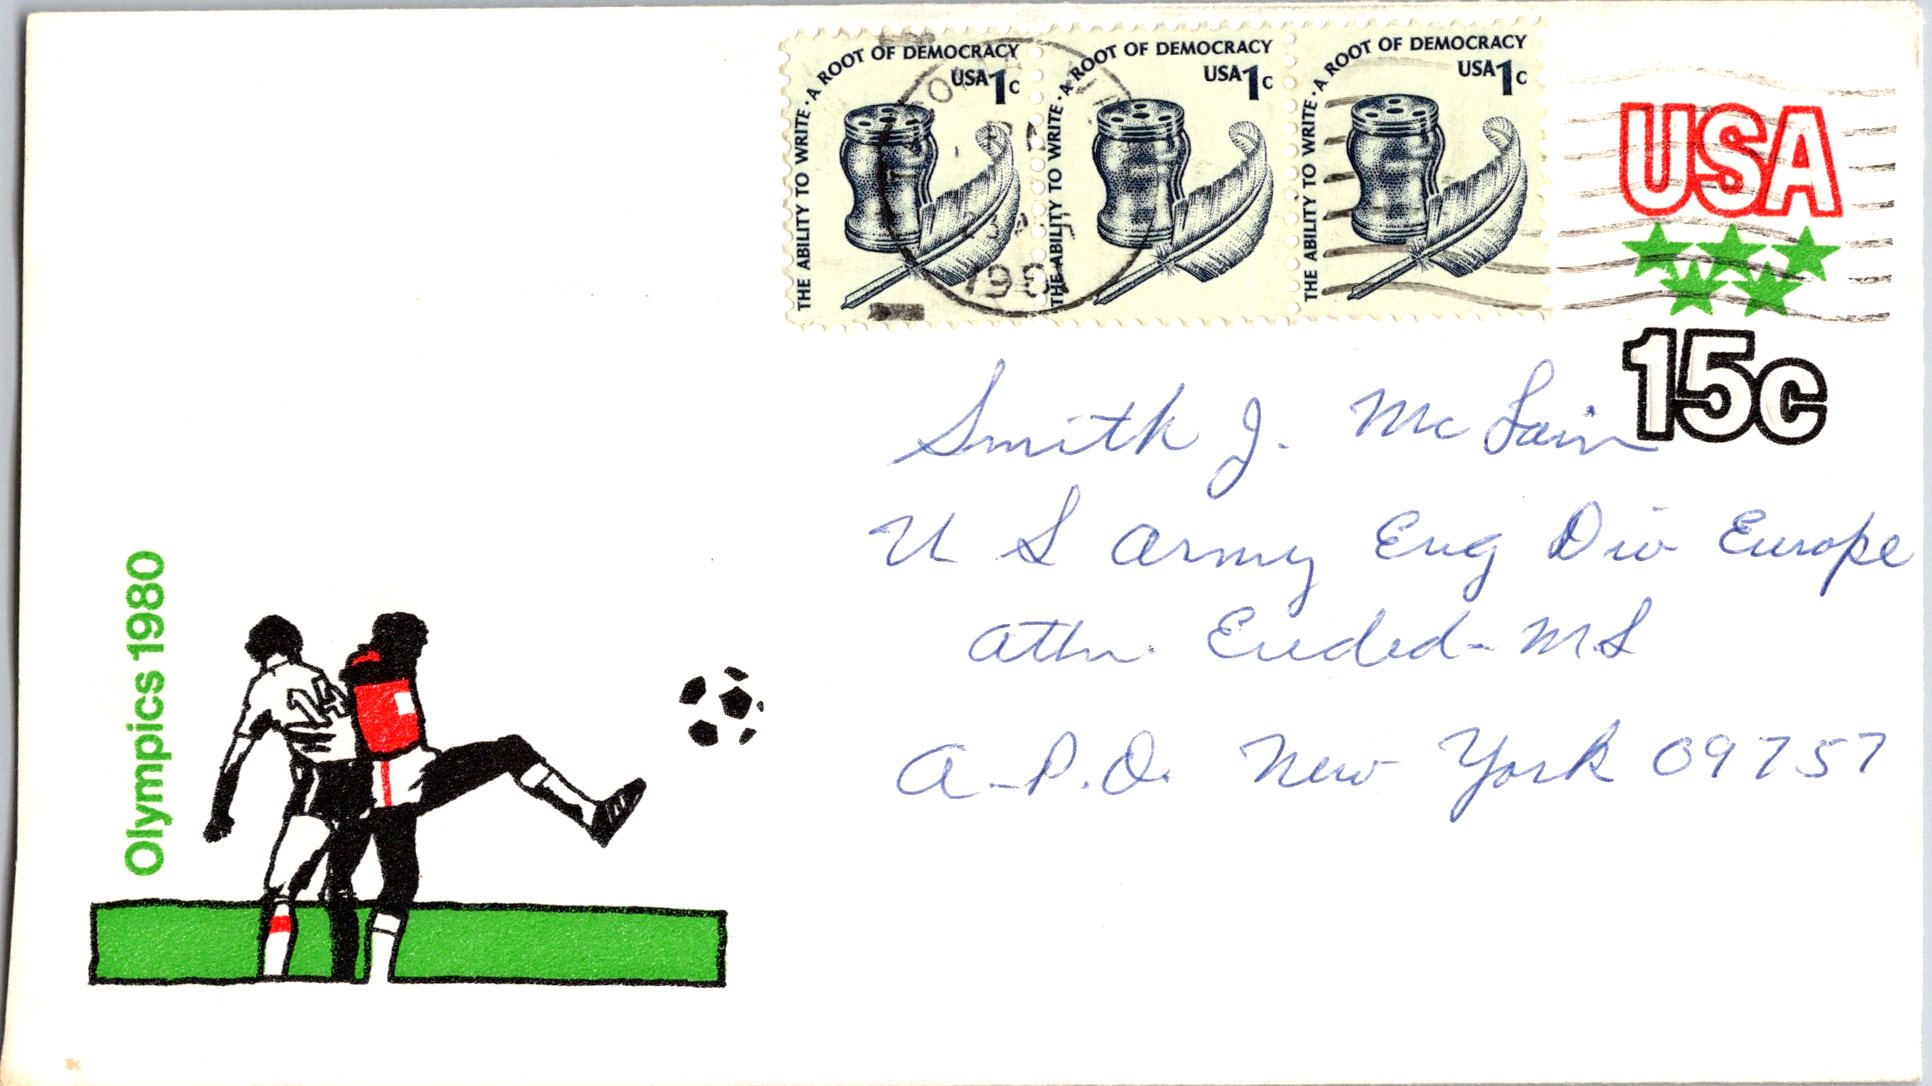 THE ABILITY TO WRITE · A ROOT OF DEMOCRACY
USA 1c
THE ABILITY TO WRITE · A ROOT OF DEMOCRACY
USA 1c
THE ABILITY TO WRITE · A ROOT OF DEMOCRACY
USA 1c
USA
15c
Smith J. McLain
U S Army Eng Div Europe
Attn. Euded-MS
A.P.O. New York 09757
Olympics 1980
14